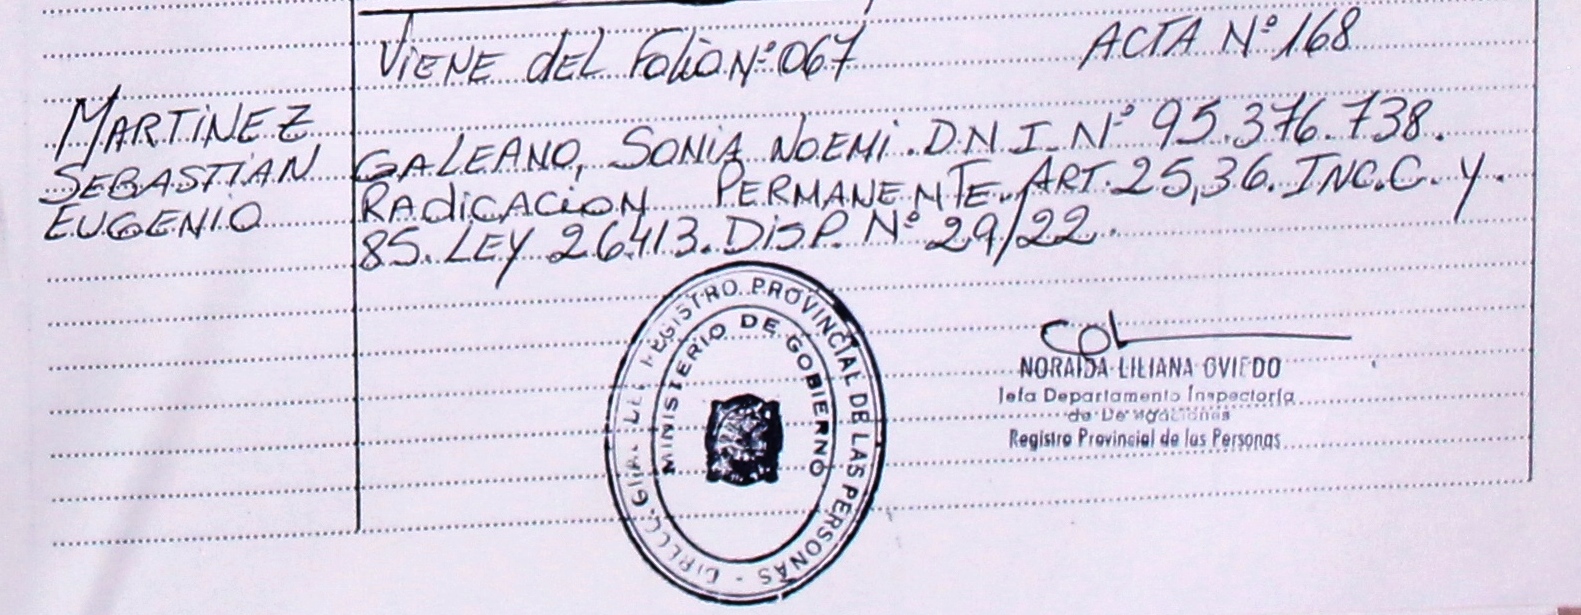 VIENE dEL FOLIO Nº 067 ACTA Nº 168
MARTINEZ
SEBASTIAN
EUGENIO
GALEANO, SONIA NOEMI. D.N.I. Nº 95.376.738.
RADICACION PERMANENTE. ART. 25,36. INC.C. Y.
85. LEY 26413. DISP. Nº 29/22.
DIRECC. GRAL. DEL REGISTRO PROVINCIAL DE LAS PERSONAS -
MINISTERIO DE GOBIERNO
NORAIDA LILIANA OVIEDO
Jefa Departamento Inspectoría
de Delegaciones
Registro Provincial de las Personas